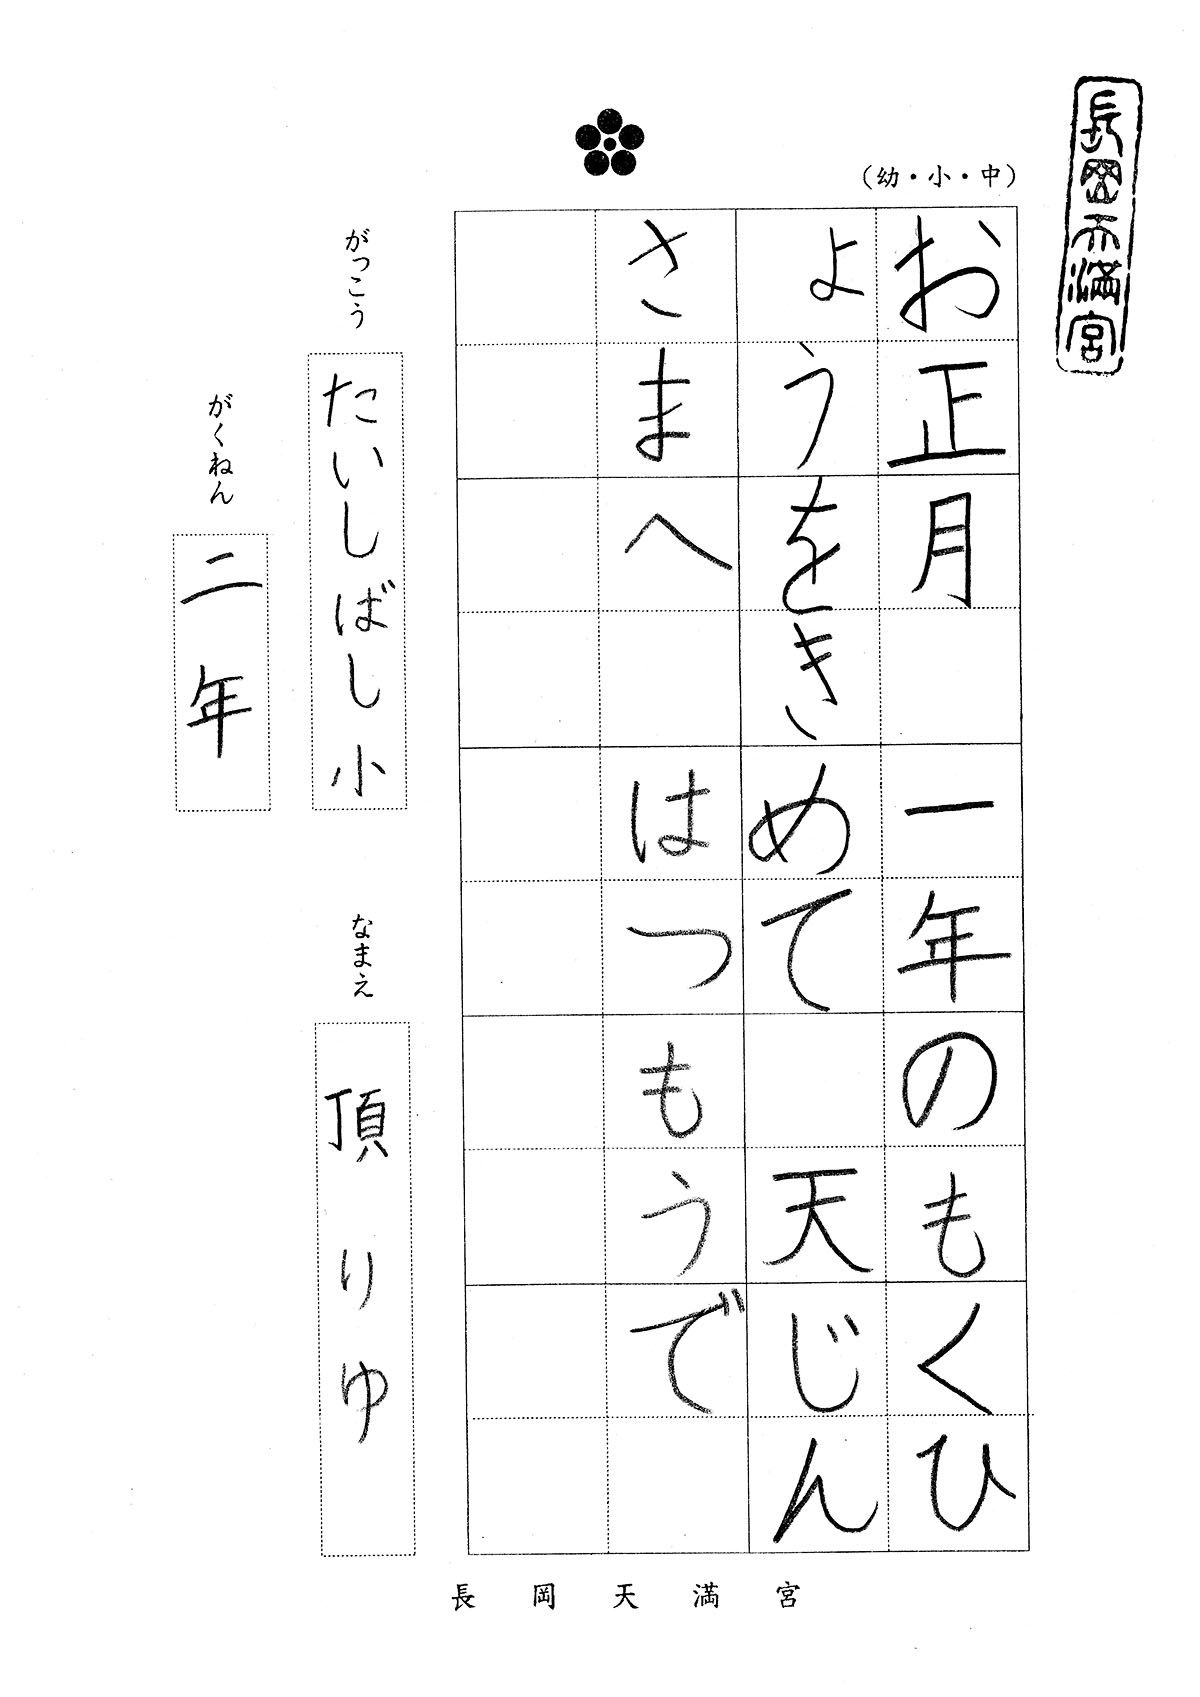 長岡天満宮
（幼・小・中）
お正月　一年のもくひ
ょうをきめて　天じん
さまへ　はつもうで
がっこう
たいしばし小
がくねん
二年
なまえ
頂りゆ
長岡天満宮